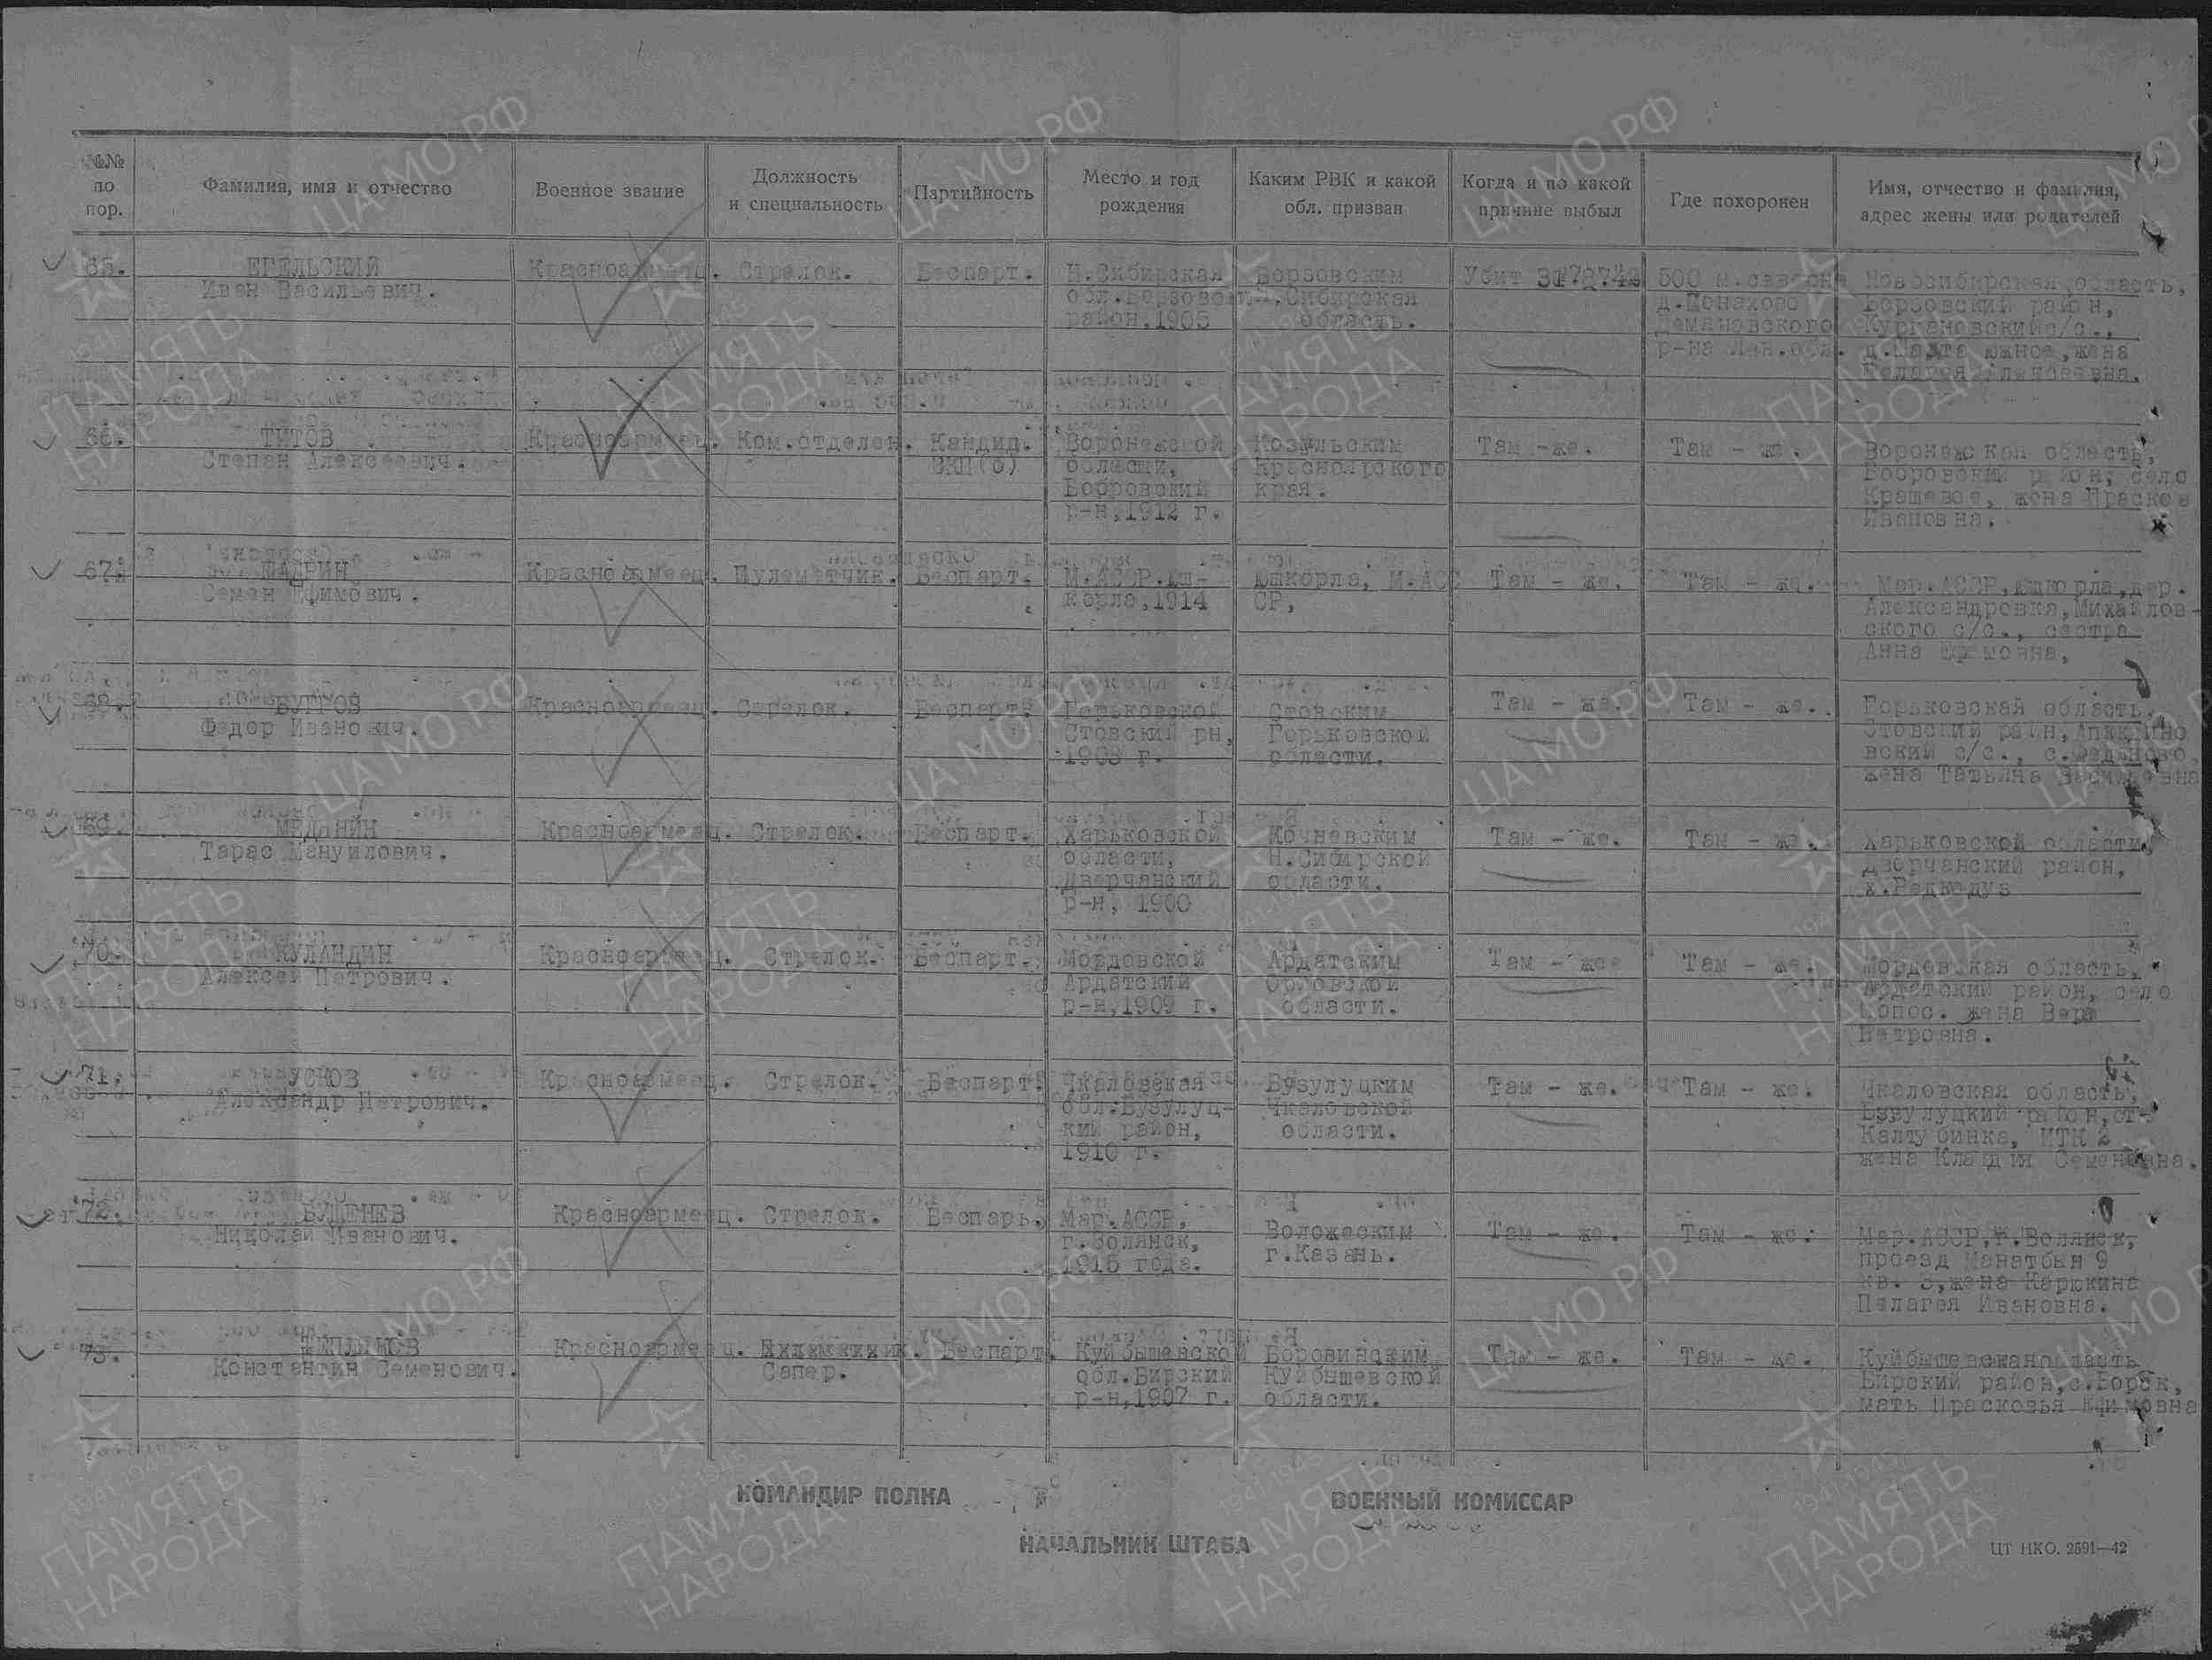 №№ по пор.
Фамилия, имя и отчество
Военное звание
Должность и специальность
Партийность
Место и год рождения
Каким РВК и какой обл. призван
Когда и по какой причине выбыл
Где похоронен
Имя, отчество и фамилия, адрес жены или родителей
65.
ЕГЕЛЬСКИЙ
Иван Васильевич.
Красноармеец.
Стрелок.
Беспарт.
Н.Сибирская
район, 1905
Борзовским
Н.Сибирская
область.
Убит
500 м.
д.Монахово
Демяновского
р-на Лен.обл.
Новосибирская область,
Борзовский район,
Кургановский с/с.,
южное, жена
Пелагея Алексеевна.
66.
ТИТОВ
Степан Алексеевич.
Красноармеец.
Ком.отделен.
Кандид.
ВКП(б)
Воронежской
области,
Бобровский
р-н,1912 г.
Козульским
Красноярского
края.
Там -же.
Там - же.
Воронежская область,
Бобровский район, село
жена Прасков
Ивановна.
67.
ШАДРИН
Семен Ефимович.
Красноармеец.
Пулеметчик.
Беспарт.
М.АССР.Юш-
корла,1914
Юшкорла, М.АС
СР,
Там - же.
Там - же.
Мар.АССР,Юшкорла,дер.
Александровка,Михайлов-
ского с/с., сестра
Анна Ефимовна.
68.
БУГРОВ
Федор Иванович.
Красноармеец.
Стрелок.
Беспарт.
Горьковской
Стовский рн,
1908 г.
Стовским
Горьковской
области.
Там - же.
Там - же.
Горьковская область,
Стовский район,
вский с/с.,
жена Татьяна Васильевна
69.
Тарас Мануилович.
Красноармеец.
Стрелок.
Беспарт.
Харьковской
области,
Дверчанский
р-н, 1900
Кочневским
Н.Сибирской
области.
Там - же.
Там - же.
Харьковской области
Дворчанский район,
х.Редкодуз
70.
КУЛАНДИН
Алексей Петрович.
Красноармеец.
Стрелок.
Беспарт.
Мордовской
Ардатский
р-н,1909 г.
Ардатским
Орловской
области.
Там - же
Там - же.
Мордовская область,
Ардатский район, село
жена Вера
Петровна.
71.
УСКОВ
Александр Петрович.
Красноармеец.
Стрелок.
Беспарт.
Чкаловская
обл.Бузулуц-
кий район,
1910 г.
Бузулуцким
Чкаловской
области.
Там - же.
Там - же.
Чкаловская область,
Бузулуцкий район,ст.
Калтубинка, ИТК 2
жена Клавдия Семеновна.
72.
БУДЕНЕВ
Николай Иванович.
Красноармеец.
Стрелок.
Беспарь.
Мар.АССР,
г.Волянск,
1915 года.
Воложеским
г.Казань.
Там - же.
Там - же.
Мар.АССР,г.Волянск,
проезд Манатбын 9
кв. 3,жена Карюкина
Пелагея Ивановна.
73.
Константин Семенович.
Красноармеец.
Сапер.
Беспарт.
Куйбышевской
обл.Бирский
р-н,1907 г.
Боровинским
Куйбышевской
области.
Там - же.
Там - же.
Куйбышевская область
Бирский район,с.Борск,
мать Прасковья Ефимовна
КОМАНДИР ПОЛКА
ВОЕННЫЙ КОМИССАР
НАЧАЛЬНИК ШТАБА
ЦТ НКО. 2591—42
ЦА МО РФ
1941-1945
ПАМЯТЬ
НАРОДА